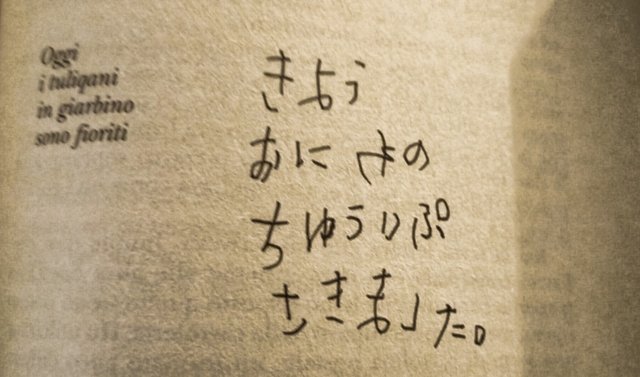 Oggi
i tuliqani
in giarbino
sono fioriti
きよう
おにわの
ちゆうりぷ
さきました。